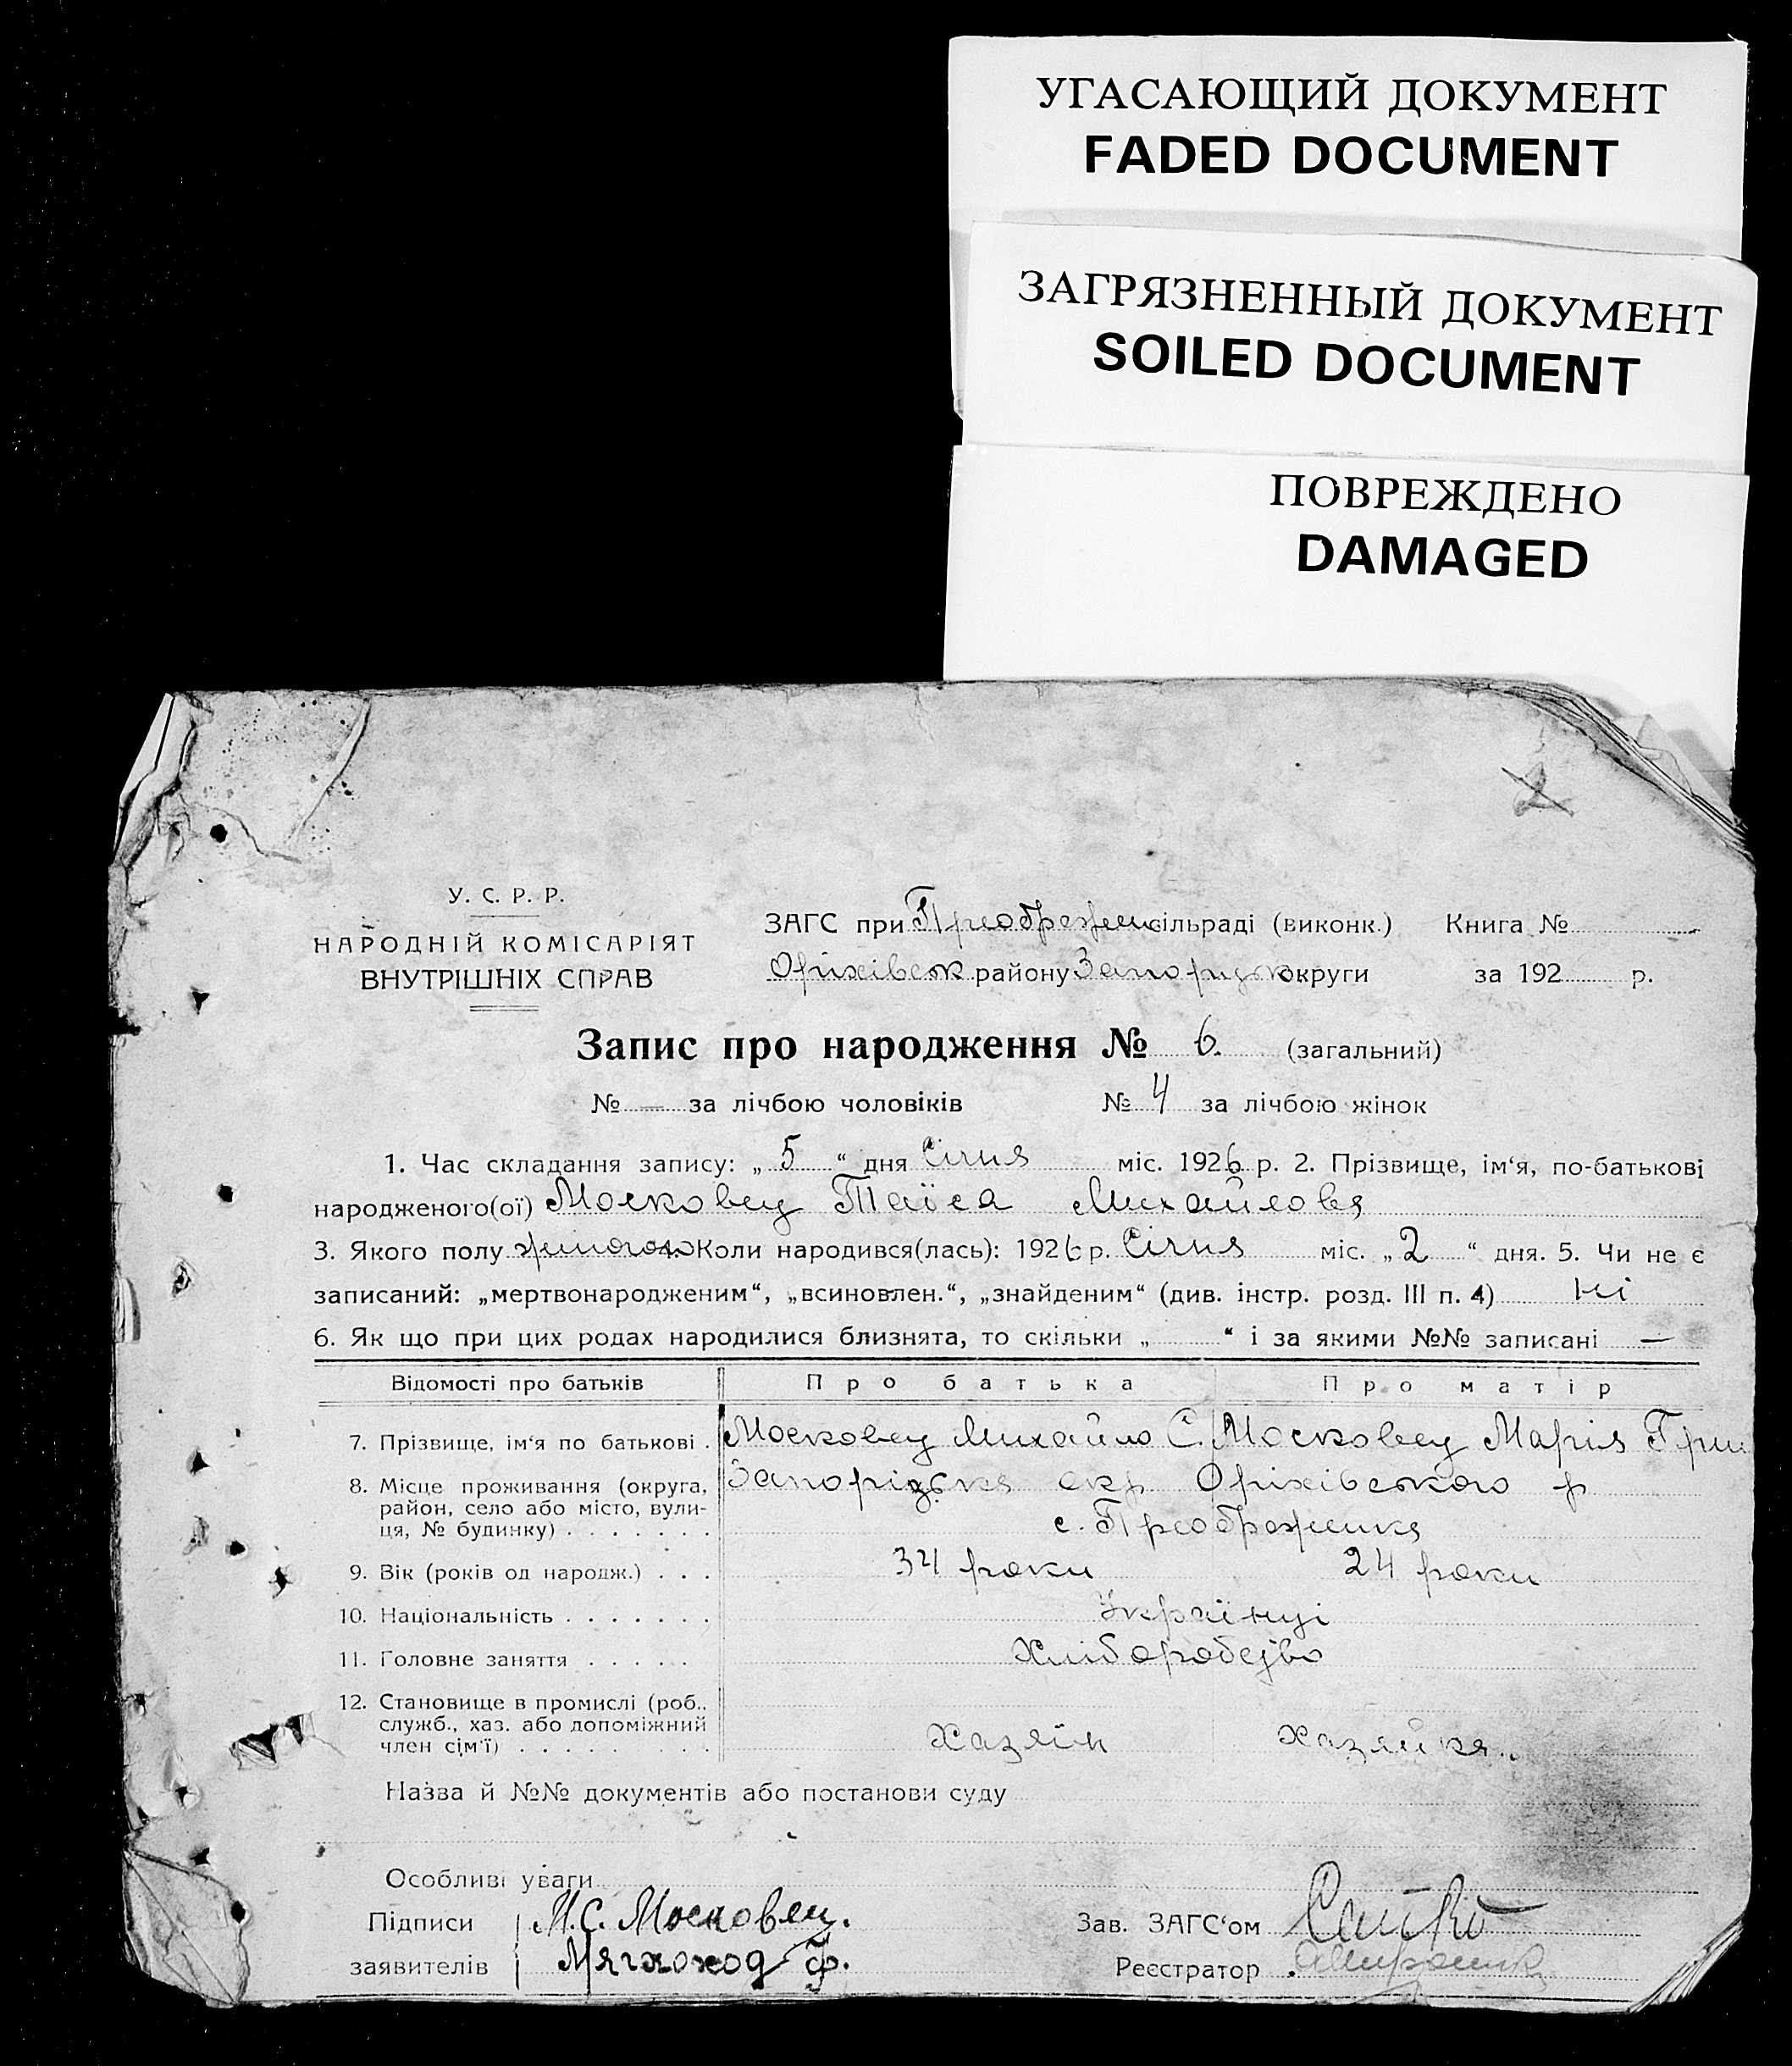 УГАСАЮЩИЙ ДОКУМЕНТ
FADED DOCUMENT
ЗАГРЯЗНЕННЫЙ ДОКУМЕНТ
SOILED DOCUMENT
ПОВРЕЖДЕНО
DAMAGED
2
У. С. Р. Р.
НАРОДНІЙ КОМІСАРІЯТ
ВНУТРІШНІХ СПРАВ
ЗАГС при Преображен сільраді (виконк.) Книга №
Оріхівськ району Запорізьк округи за 192 р.
Запис про народження № 6. (загальний)
№ — за лічбою чоловіків № 4 за лічбою жінок
1. Час складання запису: „ 5 “ дня Січня міс. 1926 р. 2. Прізвище, ім‘я, по-батькові
народженого(ої) Московец Таїса Михайловя
3. Якого полу жіночого 4. Коли народився(лась): 1926 р. Січня міс. „ 2 “ дня. 5. Чи не є
записаний: „мертвонародженим“, „всиновлен.“, „знайденим“ (див. інстр. розд. III п. 4) ні
6. Як що при цих родах народилися близнята, то скільки „ “ і за якими №№ записані —
Відомості про батьків Про батька Про матір
7. Прізвище, ім‘я по батькові . Московец Михайло С. Московец Марія Гри
8. Місце проживання (округа, район, село або місто, вулиця, № будинку) . . . . . . . Запорізьскя окр Оріхівського р
с. Преображенкя
9. Вік (років од народж.) . . . 34 роки 24 роки
10. Національність . . . . . . . Українці
11. Головне заняття . . . . . Хліборобство
12. Становище в промислі (роб., служб., хаз. або допоміжний член сім‘ї) . . . . . . . . . Хазяїн Хазяйкя
Назва й №№ документів або постанови суду
Особливі уваги
Підписи М. С. Московец. Зав. ЗАГС‘ом
заявителів Мягкоход Ф. Реєстратор